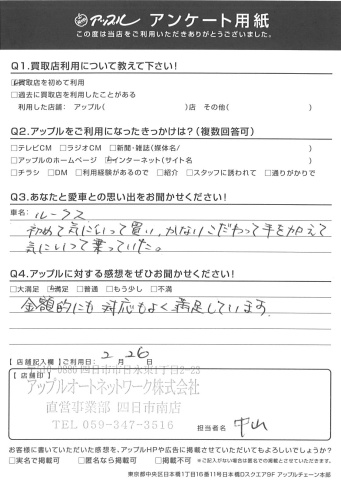 アップル アンケート用紙
この度は当店をご利用いただきありがとうございました。
Q1.買取店利用について教えて下さい!
☑買取店を初めて利用
□過去に買取店を利用したことがある
利用した店舗: アップル( )店 その他( )
Q2.アップルをご利用になったきっかけは?(複数回答可)
□テレビCM □ラジオCM □新聞・雑誌(媒体名/ )
□アップルのホームページ ☑インターネット(サイト名 )
□チラシ □DM □利用経験があるので □紹介 □スタッフに誘われて □通りがかりで
Q3.あなたと愛車との思い出をお聞かせください!
車名:
初めて気にいって買い、かなりこだわって手を加えて
気にいって乗っていた。
Q4.アップルに対する感想をぜひお聞かせください!
□大満足 ☑満足 □普通 □もう少し □不満
金額的にも対応もよく満足しています
【店舗記入欄】ご利用日: 2月26日
【店舗印】
アップルオートネットワーク株式会社
直営事業部 四日市南店
TEL 059-347-3516
担当者名 中山
お客様に書いていただいた感想を、アップルHPや広告に掲載させていただいてもよろしいでしょうか?
□実名で掲載可 □匿名なら掲載可 □掲載不可 ※ご記入がない場合は匿名での掲載とさせていただきます。
東京都中央区日本橋1丁目16番11号日本橋Dスクエア9F アップルチェーン本部